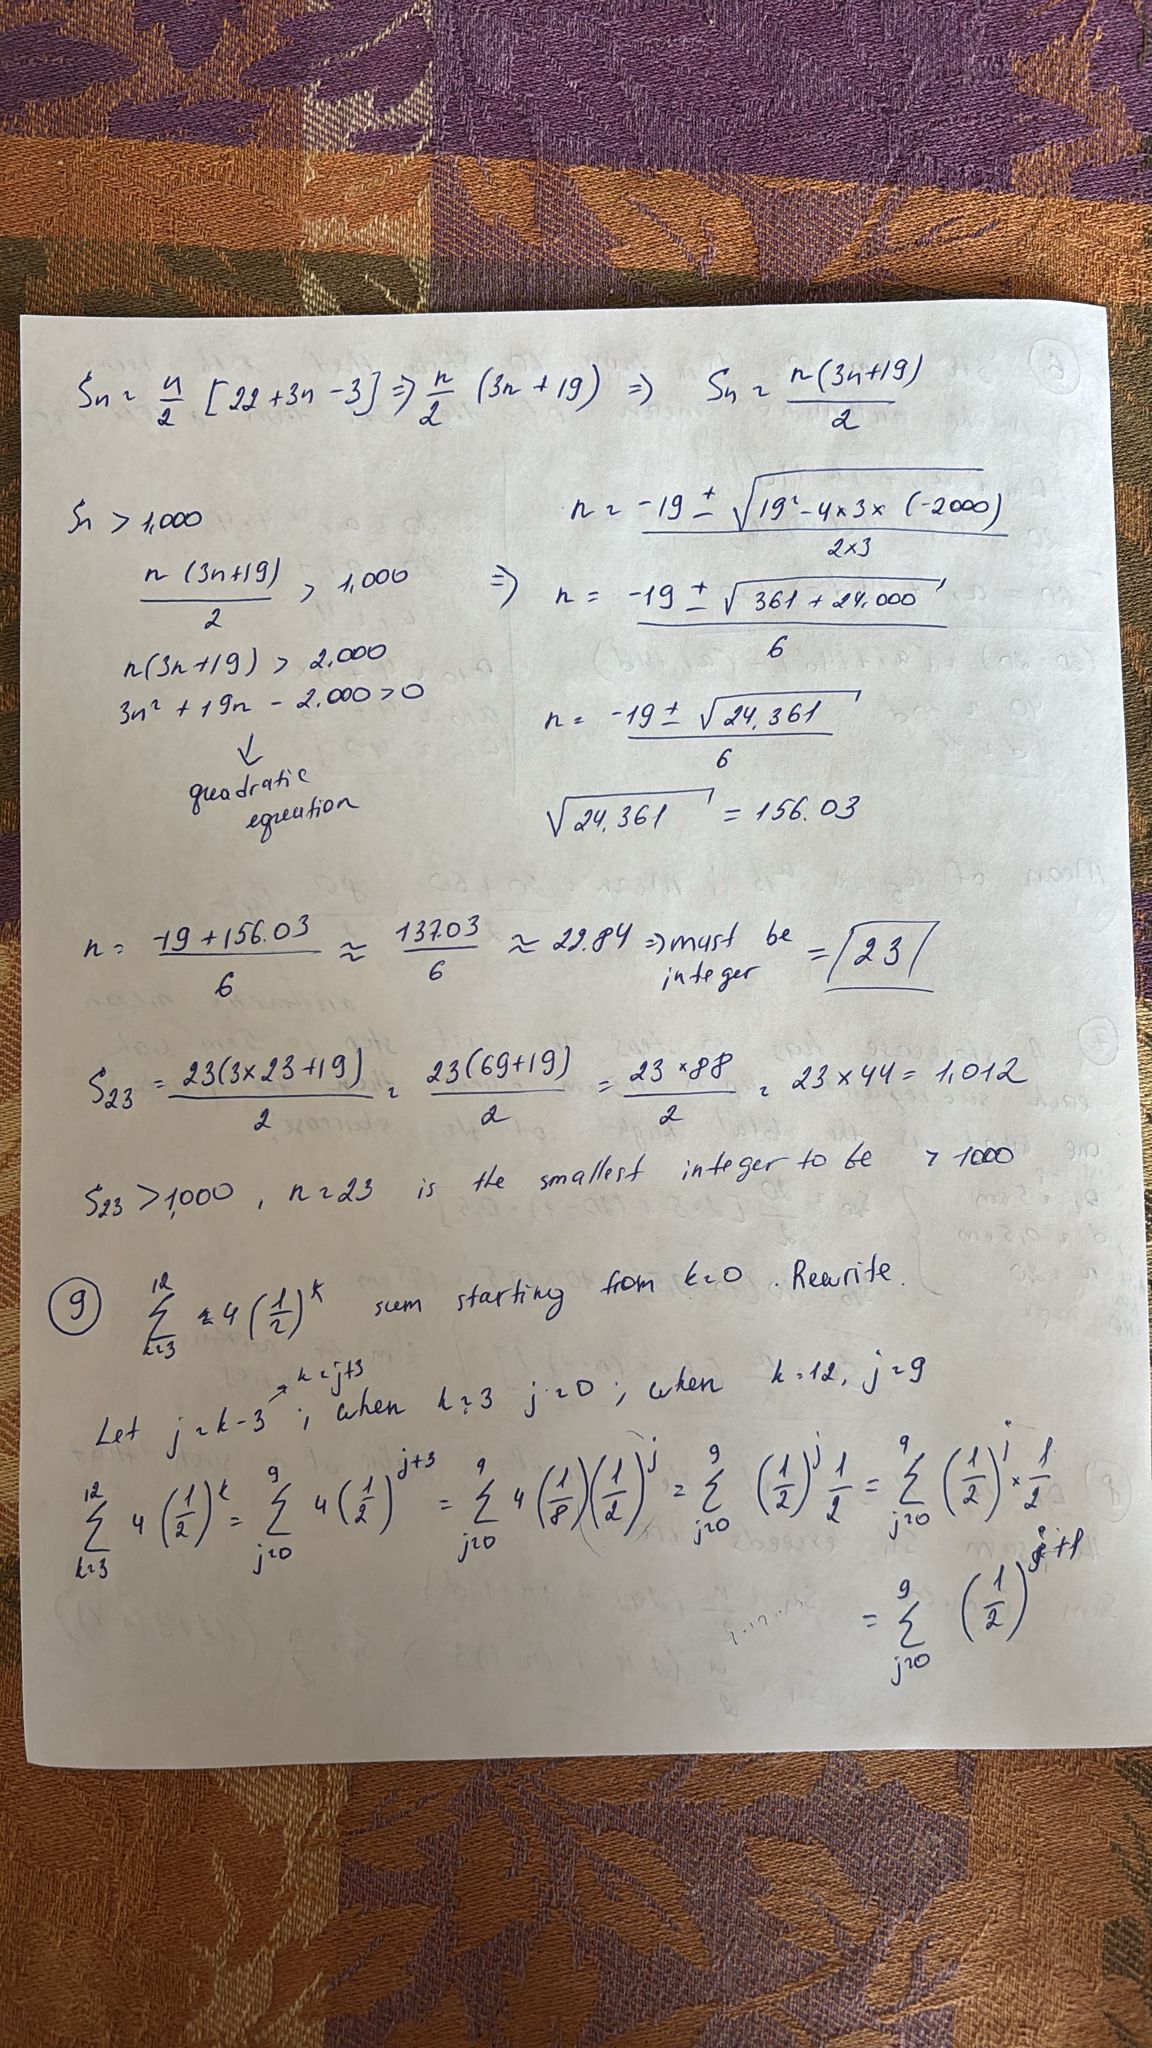 Sn = n/2 [22 + 3n - 3] => n/2 (3n + 19) => Sn = n(3n+19)/2
Sn > 1,000
n(3n+19)/2 > 1,000
n(3n+19) > 2.000
3n² + 19n - 2.000 > 0
↓
quadratic
equation
=> n = -19 ± √(19² - 4×3×(-2000)) / 2×3
n = -19 ± √(361 + 24.000) / 6
n = -19 ± √(24,361) / 6
√(24,361) = 156.03
n = -19 + 156.03 / 6 ≈ 137.03 / 6 ≈ 22.84 => must be integer = 23
S23 = 23(3×23+19)/2 = 23(69+19)/2 = 23×88/2 = 23×44 = 1,012
S23 > 1,000, n = 23 is the smallest integer to be > 1000
9 12 Σ k=3 = 4(1/2)^k sum starting from k=0. Rewrite.
Let j = k-3 → k = j+3; when k=3 j=0; when k=12, j=9
12 Σ k=3 4(1/2)^k = 9 Σ j=0 4(1/2)^j+3 = 9 Σ j=0 4(1/8)(1/2)^j = 9 Σ j=0 (1/2)^j 1/2 = 9 Σ j=0 (1/2)^j × 1/2
= 9 Σ j=0 (1/2)^j+1